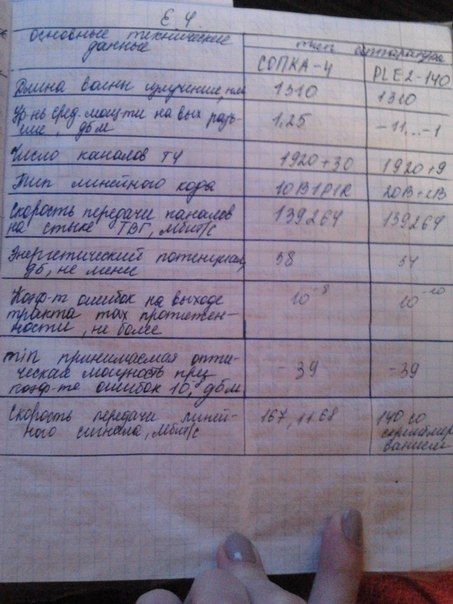 Е 4.
Основные технические данные
тип аппаратуры
СОПКА-4
PLE2-140
Длина волны излучения, нм
1310
1310
Ур-нь сред. мощ-ти на вых разъ-
еме дбм
1,25
-11...-1
Число каналов ТЧ
1920+30
1920+9
Тип линейного кода
10В1Р1R
Скорость передачи каналов
на стыке ТВГ, мбит/с
139264
139264
Энергетический потенциал,
дб, не менее
38
34
Коэф-т ошибок на выходе
тракта max протяжен-
ности, не более
10⁻⁸
10⁻¹⁰
min принимаемая опти-
ческая мощность при
коэф-те ошибок 10, дбм
-39
-39
Скорость передачи линей-
ного сигнала, мбит/с
167,1168
140 со
скремблиро
ванием